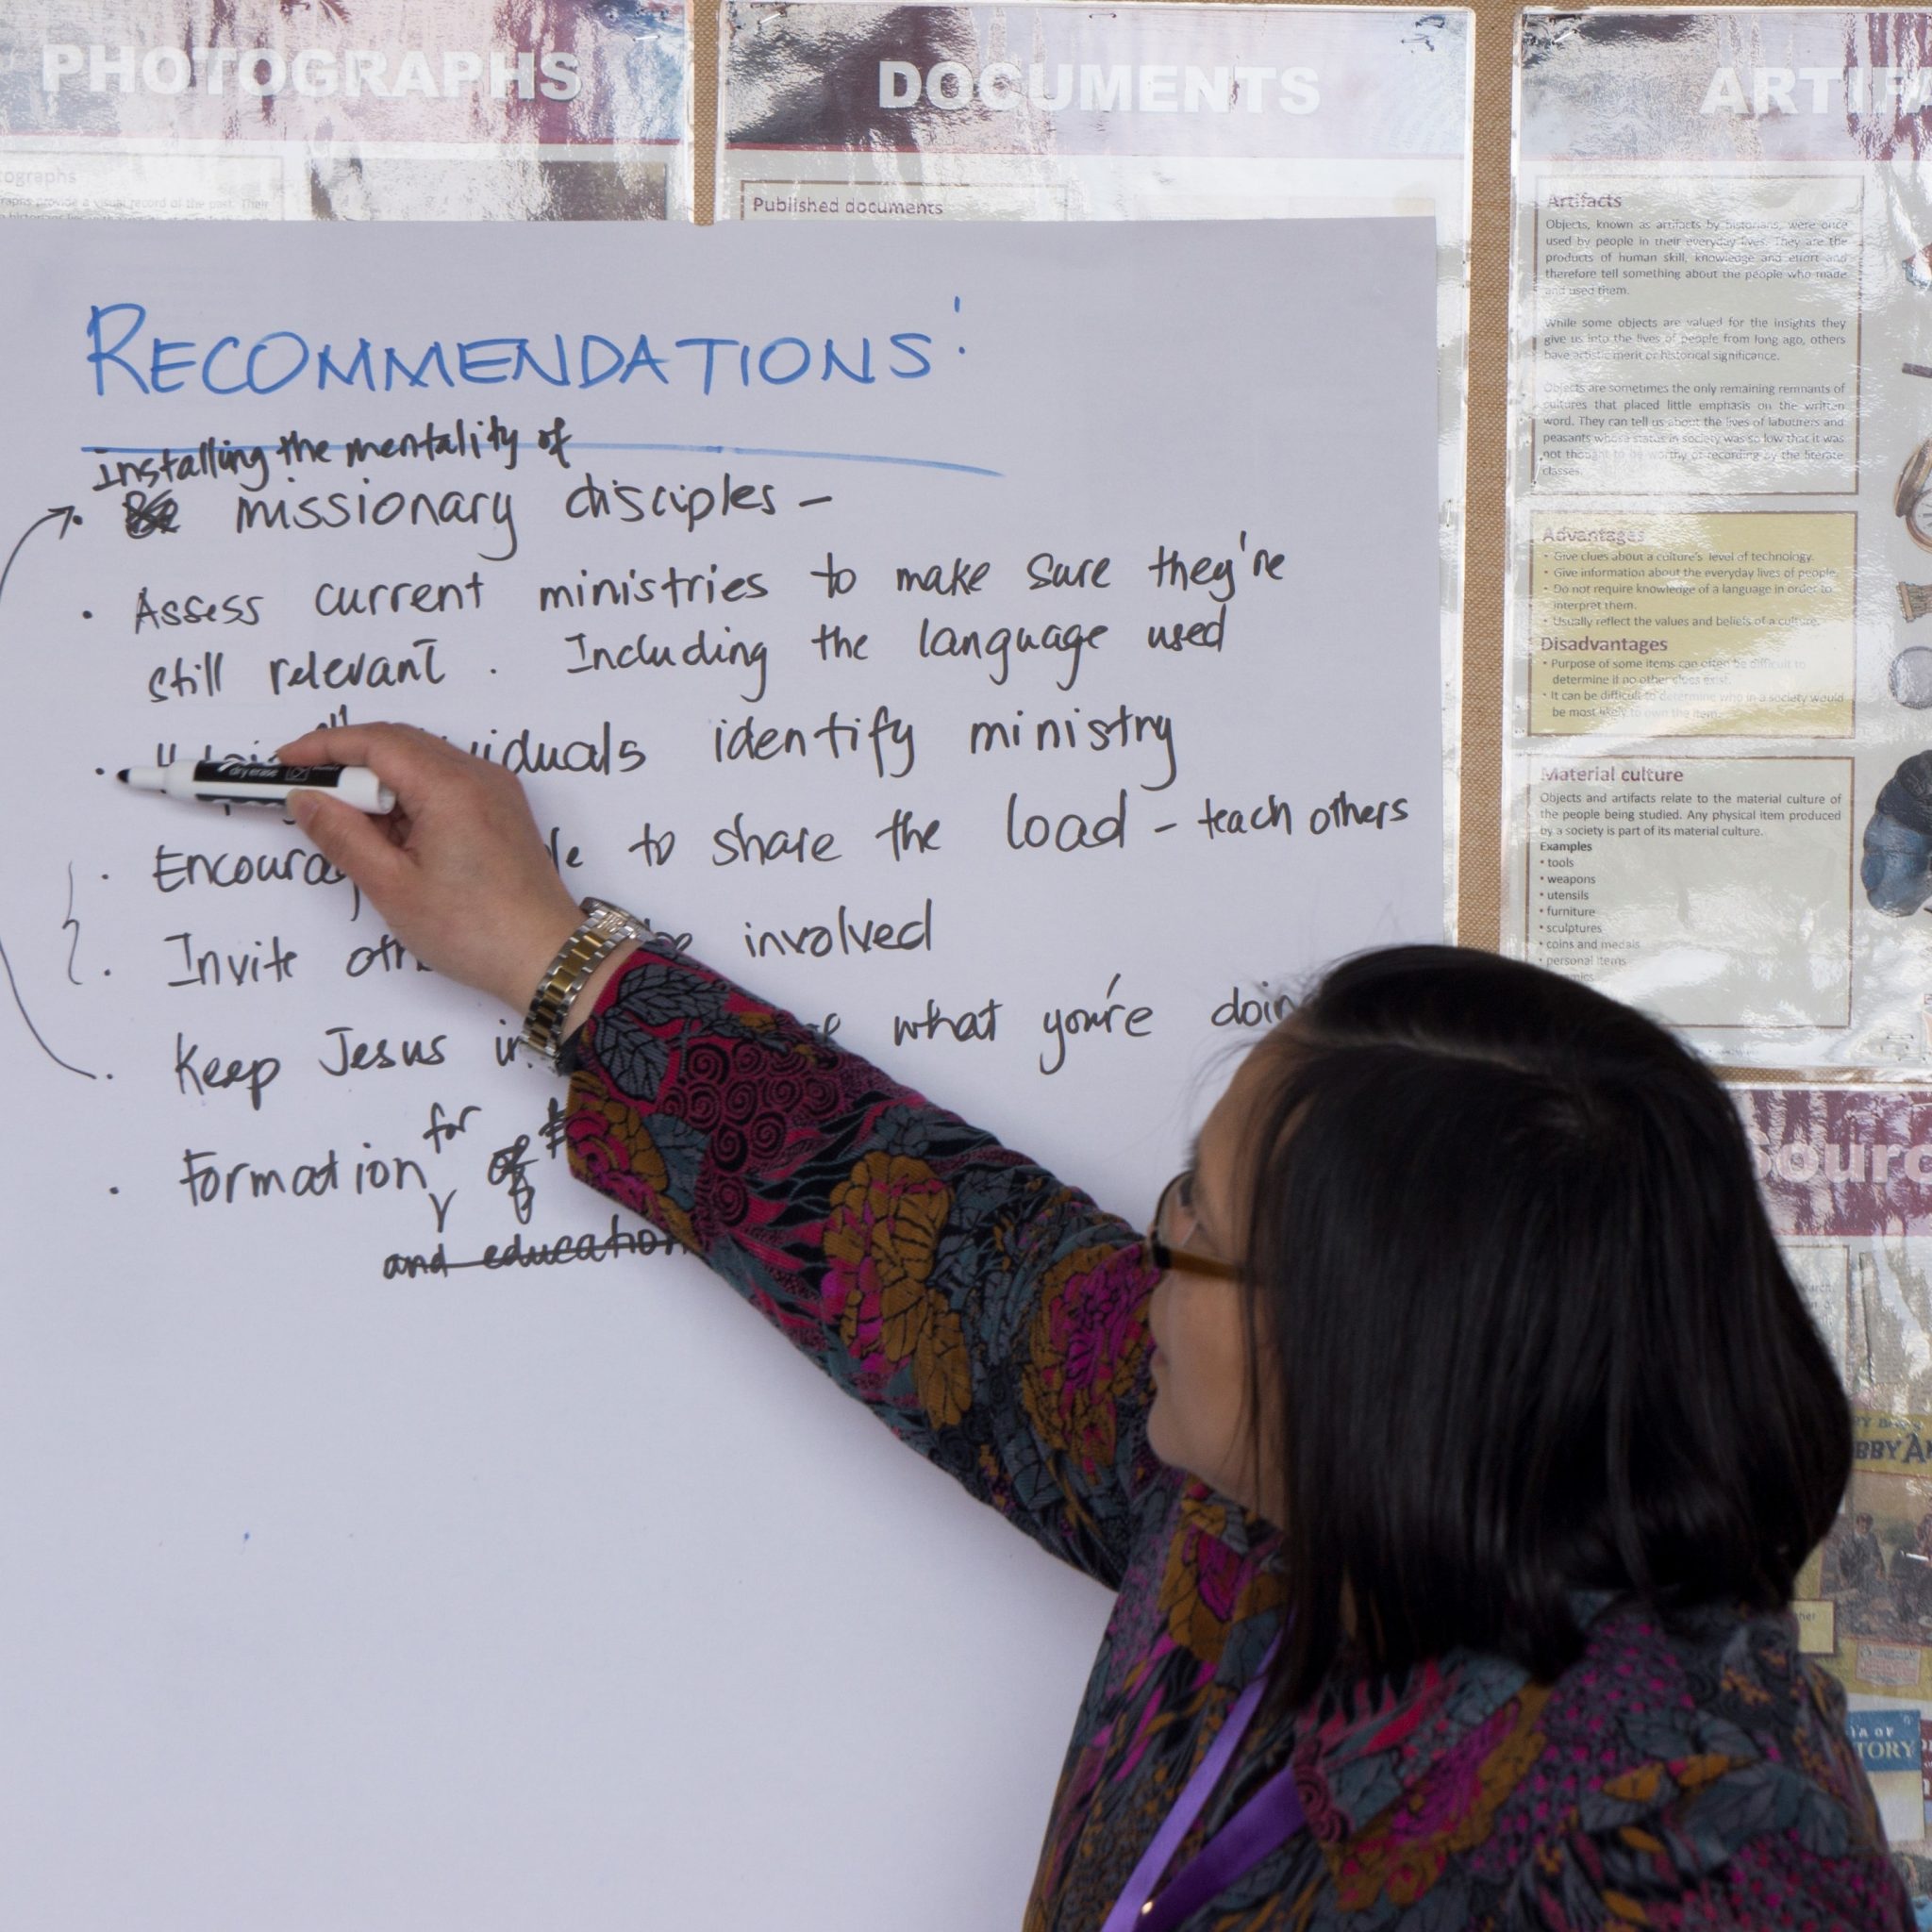 PHOTOGRAPHS
DOCUMENTS
Published documents
RECOMMENDATIONS:
Installing the mentality of
• missionary disciples -
• Assess current ministries to make sure they're
still relevant. Including the language used
identify ministry
• to share the load - teach others
• Invite involved
• Keep Jesus what you're
• Formation for
and education
Artifacts
Objects, known as artifacts by historians, were once
used by people in their everyday lives. They are the
products of human skill, knowledge and effort and
therefore tell something about the people who made
and used them.
While some objects are valued for the insights they
give us into the lives of people from long ago, others
have artistic merit or historical significance.
Objects are sometimes the only remaining remnants of
cultures that placed little emphasis on the written
word. They can tell us about the lives of labourers and
peasants whose status in society was so low that it was
not thought to be worthy of recording by the literate
classes.
Advantages
• Give clues about a culture's level of technology.
• Give information about the everyday lives of people.
• Do not require knowledge of a language in order to
interpret them.
• Usually reflect the values and beliefs of a culture.
Disadvantages
• Purpose of some items can often be difficult to
determine if no other clues exist.
• It can be difficult to determine who in a society would
be most likely to own the item.
Material culture
Objects and artifacts relate to the material culture of
the people being studied. Any physical item produced
by a society is part of its material culture.
Examples
• tools
• weapons
• utensils
• furniture
• sculptures
• coins and medals
• personal items